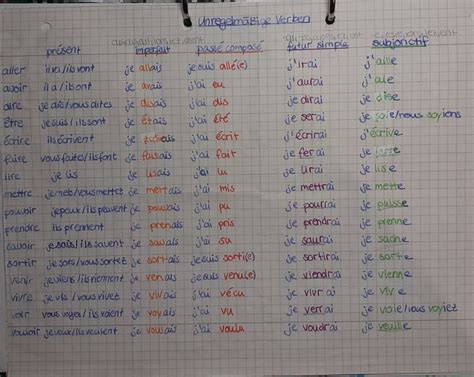 Unregelmäßige Verben
présent imparfait passé composé futur simple subjonctif
aller il va/ils vont je allais je suis allé(e) j'irai j'aille
avoir il a/ils ont je avais j'ai eu j'aurai j'aie
dire je dis/vous dites je disais j'ai dit je dirai je dise
être je suis/ils sont je étais j'ai été je serai je sois/nous soyions
écrire ils écrivent je écrivais j'ai écrit j'écrirai j'écrive
faire vous faites/ils font je faisais j'ai fait je ferai je fasse
lire je lis je lisais j'ai lu je lirai je lise
mettre je mets/vous mettez je mettais j'ai mis je mettrai je mette
pouvoir je peux/ils peuvent je pouvais j'ai pu je pourrai je puisse
prendre ils prennent je prenais j'ai pris je prendrai je prenne
savoir je sais/ils savent je savais j'ai su je saurai je sache
sortir je sors/vous sortez je sortais je suis sorti(e) je sortirai je sorte
venir je viens/ils viennent je venais je suis venu(e) je viendrai je vienne
vivre je vis/vous vivez je vivais j'ai vécu je vivrai je vive
voir vous voyez/ils voient je voyais j'ai vu je verrai je voie/vous voyiez
vouloir je veux/ils veulent je voulais j'ai voulu je voudrai je veuille